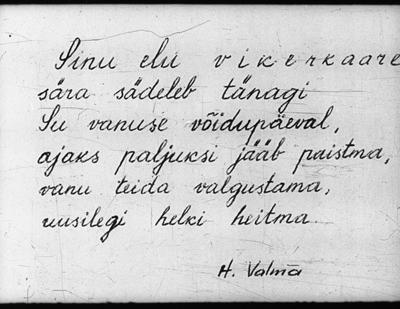 Sinu elu vikerkaare
sära sädeleb tänagi
Su vanuse võidupäeval,
ajaks paljuksi jääb paistma,
vanu teida valgustama,
uusilegi helki heitma.
H. Valma